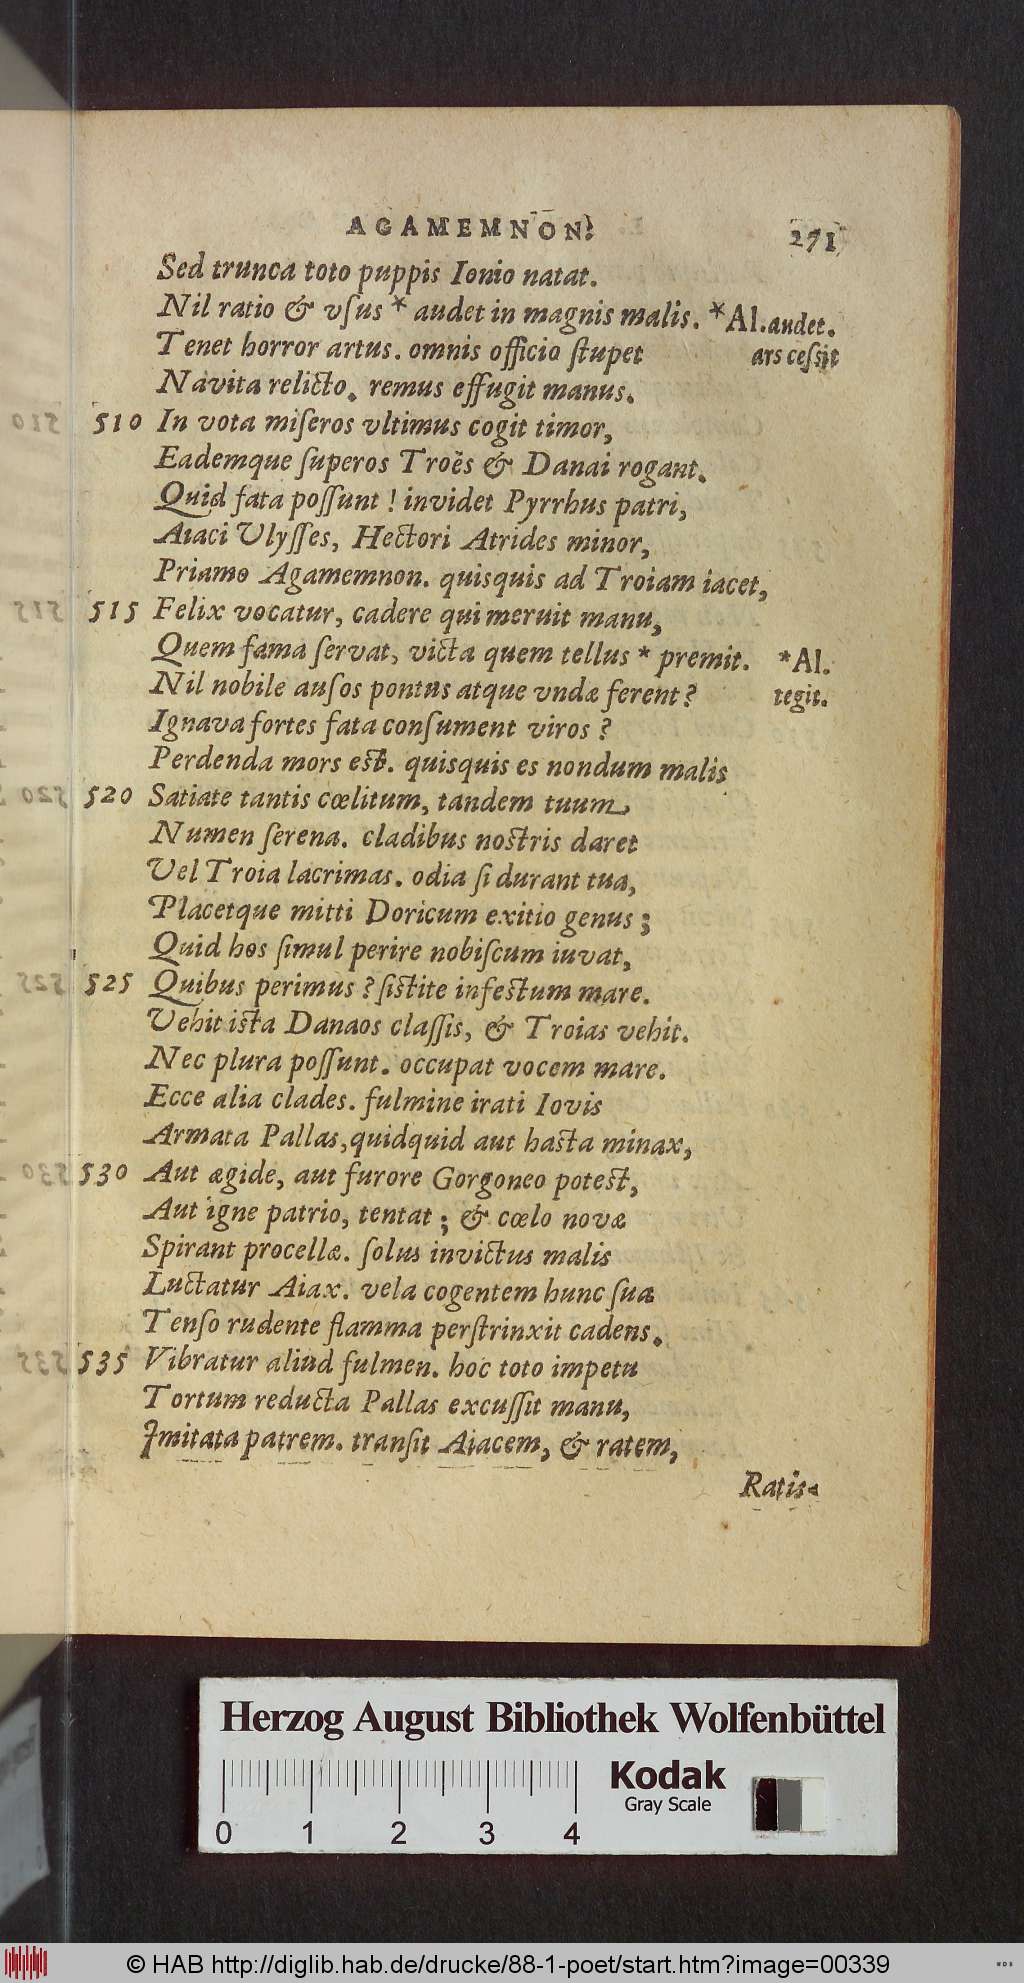 AGAMEMNON. 271
Sed trunca toto puppis Ionio natat.
Nil ratio & vſus * audet in magnis malis. *Al. audet.
Tenet horror artus. omnis officio ſtupet ars ceſſit
Navita relicto. remus effugit manus.
510 In vota miſeros vltimus cogit timor,
Eademque ſuperos Troës & Danai rogant.
Quid fata poſſunt! invidet Pyrrhus patri,
Aiaci Ulyſſes, Hectori Atrides minor,
Priamo Agamemnon. quisquis ad Troiam iacet,
515 Felix vocatur, cadere qui meruit manu,
Quem fama ſervat, victa quem tellus * premit. *Al.
Nil nobile auſos pontus atque vndæ ferent? tegit.
Ignava fortes fata conſument viros?
Perdenda mors est. quisquis es nondum malis
520 Satiate tantis cœlitum, tandem tuum
Numen ſerena. cladibus nostris daret
Vel Troia lacrimas. odia ſi durant tua,
Placetque mitti Doricum exitio genus;
Quid hos ſimul perire nobiſcum iuvat,
525 Quibus perimus? ſistite infestum mare.
Vehit ista Danaos claſſis, & Troias vehit.
Nec plura poſſunt. occupat vocem mare.
Ecce alia clades. fulmine irati Iovis
Armata Pallas, quidquid aut hasta minax,
530 Aut ægide, aut furore Gorgoneo potest,
Aut igne patrio, tentat; & cœlo novæ
Spirant procellæ. ſolus invictus malis
Luctatur Aiax. vela cogentem hunc ſua
Tenſo rudente flamma perſtrinxit cadens.
535 Vibratur aliud fulmen. hoc toto impetu
Tortum reducta Pallas excuſſit manu,
Imitata patrem. tranſit Aiacem, & ratem,
Ratis-
Herzog August Bibliothek Wolfenbüttel
Kodak
Gray Scale
0 1 2 3 4
© HAB http://diglib.hab.de/drucke/88-1-poet/start.htm?image=00339